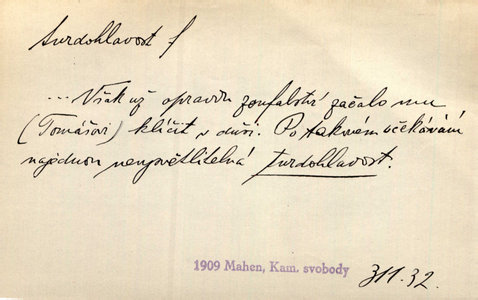 tvrdohlavost f
... Však už opravdu zoufalství začalo mu
(Tomášovi) klíčit v duši. Po takovém očekávání
najednou nevysvětlitelná tvrdohlavost.
1909 Mahen, Kam. svobody
311.32